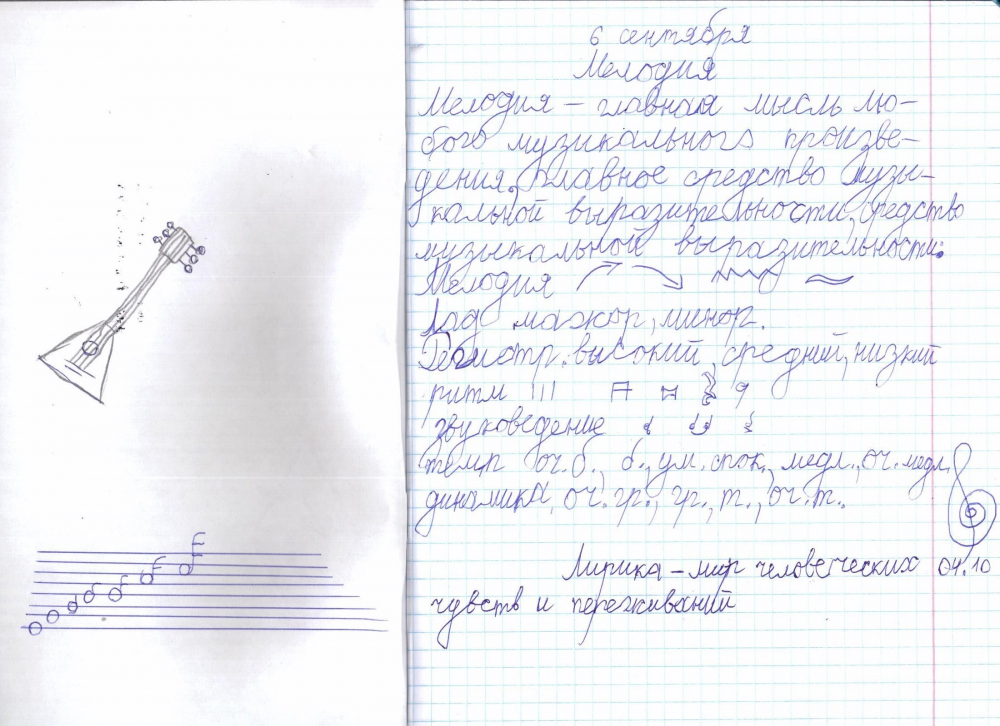 6 сентября
Мелодия
Мелодия – главная мысль лю-
бого музыкального произве-
дения. Главное средство музы-
кальной выразительности, средство
музыкальной выразительности:
Мелодия
Лад мажор, минор.
Регистр. высокий, средний, низкий
ритм
звуковедение
темп оч. б., б., ум. спок., медл., оч. медл.
динамика, оч. гр., гр., т., оч. т.
Лирика – мир человеческих 04.10
чувств и переживаний